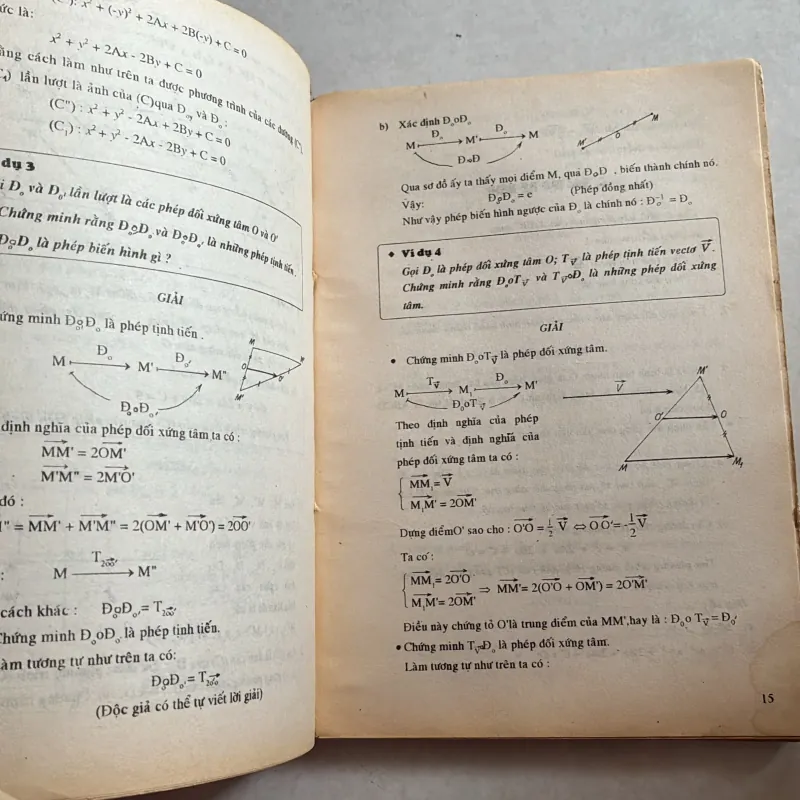 : x² + (-y)² + 2Ax + 2B(-y) + C = 0
ức là:
x² + y² + 2Ax - 2By + C = 0
ằng cách làm như trên ta được phương trình của các đường (C"),
lần lượt là ảnh của (C)qua Đ và Đₒ:
(C") : x² + y² - 2Ax + 2By + C = 0
(C₁) : x² + y² - 2Ax - 2By + C = 0
dụ 3
i Đₒ và Đₒ, lần lượt là các phép đối xứng tâm O và O'
Chứng minh rằng ĐₒoĐₒ và ĐₒoĐₒ, là những phép tịnh tiến.
ĐₒoĐₒ là phép biến hình gì ?
GIẢI
ứng minh Đₒ,oĐₒ là phép tịnh tiến .
Đₒ Đₒ,
M M' M"
ĐₒoĐₒ,
M
O O'
M'
định nghĩa của phép đối xứng tâm ta có :
MM' = 2OM'
M'M" = 2M'O'
đó :
M" = MM' + M'M" = 2(OM' + M'O') = 2OO'
T₂ₒₒ'
: M M"
cách khác : ĐₒoĐₒ, = T₂ₒₒ'
Chứng minh ĐₒoĐₒ, là phép tịnh tiến.
àm tương tự như trên ta có:
ĐₒoĐₒ, = T₂ₒ'ₒ
(Độc giả có thể tự viết lời giải)
b) Xác định ĐₒoĐₒ
Đₒ Đₒ
M M' M
ĐoĐ
M
O
M'
Qua sơ đồ ấy ta thấy mọi điểm M, quá ĐₒoĐ , biến thành chính nó.
Vậy: ĐₒoĐₒ = e (Phép đồng nhất)
Như vậy phép biến hình ngược của Đₒ là chính nó : Đₒ⁻¹ = Đₒ
♦ Ví dụ 4
Gọi Đₒ là phép đối xứng tâm O; T_V là phép tịnh tiến vectơ V .
Chứng minh rằng ĐₒoT_V và T_VoĐₒ là những phép đối xứng
tâm.
GIẢI
• Chứng minh ĐₒoT_V là phép đối xứng tâm.
T_V Đₒ
M M₁ M'
ĐₒoT_V
V
M'
O' O
M M₁
Theo định nghĩa của phép
tịnh tiến và định nghĩa của
phép đối xứng tâm ta có :
MM₁ = V
M₁M' = 2OM'
Dựng điểmO' sao cho : O'O = ½ V ⇔ OO' = -½ V
Ta có :
MM₁ = 2O'O
M₁M' = 2OM' ⇒ MM' = 2(O'O + OM') = 2O'M'
Điều này chứng tỏ O'là trung điểm của MM',hay là : Đₒo T_V = Đₒ'
• Chứng minh T_VoĐₒ là phép đối xứng tâm.
Làm tương tự như trên ta có :
15